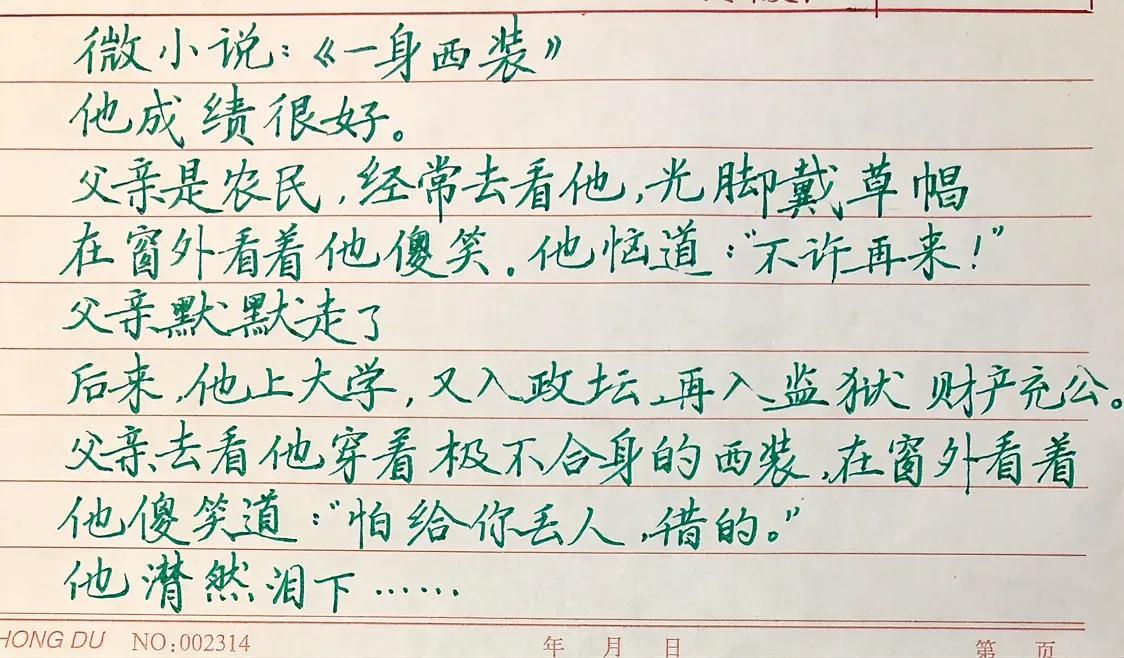 微小说：《一身西装》
他成绩很好。
父亲是农民，经常去看他，光脚戴草帽
在窗外看着他傻笑。他恼道："不许再来！"
父亲默默走了
后来，他上大学，又入政坛，再入监狱 财产充公。
父亲去看他穿着极不合身的西装，在窗外看着
他傻笑道："怕给你丢人，借的。"
他潸然泪下……
HONG DU NO:002314 年 月 日 第 页